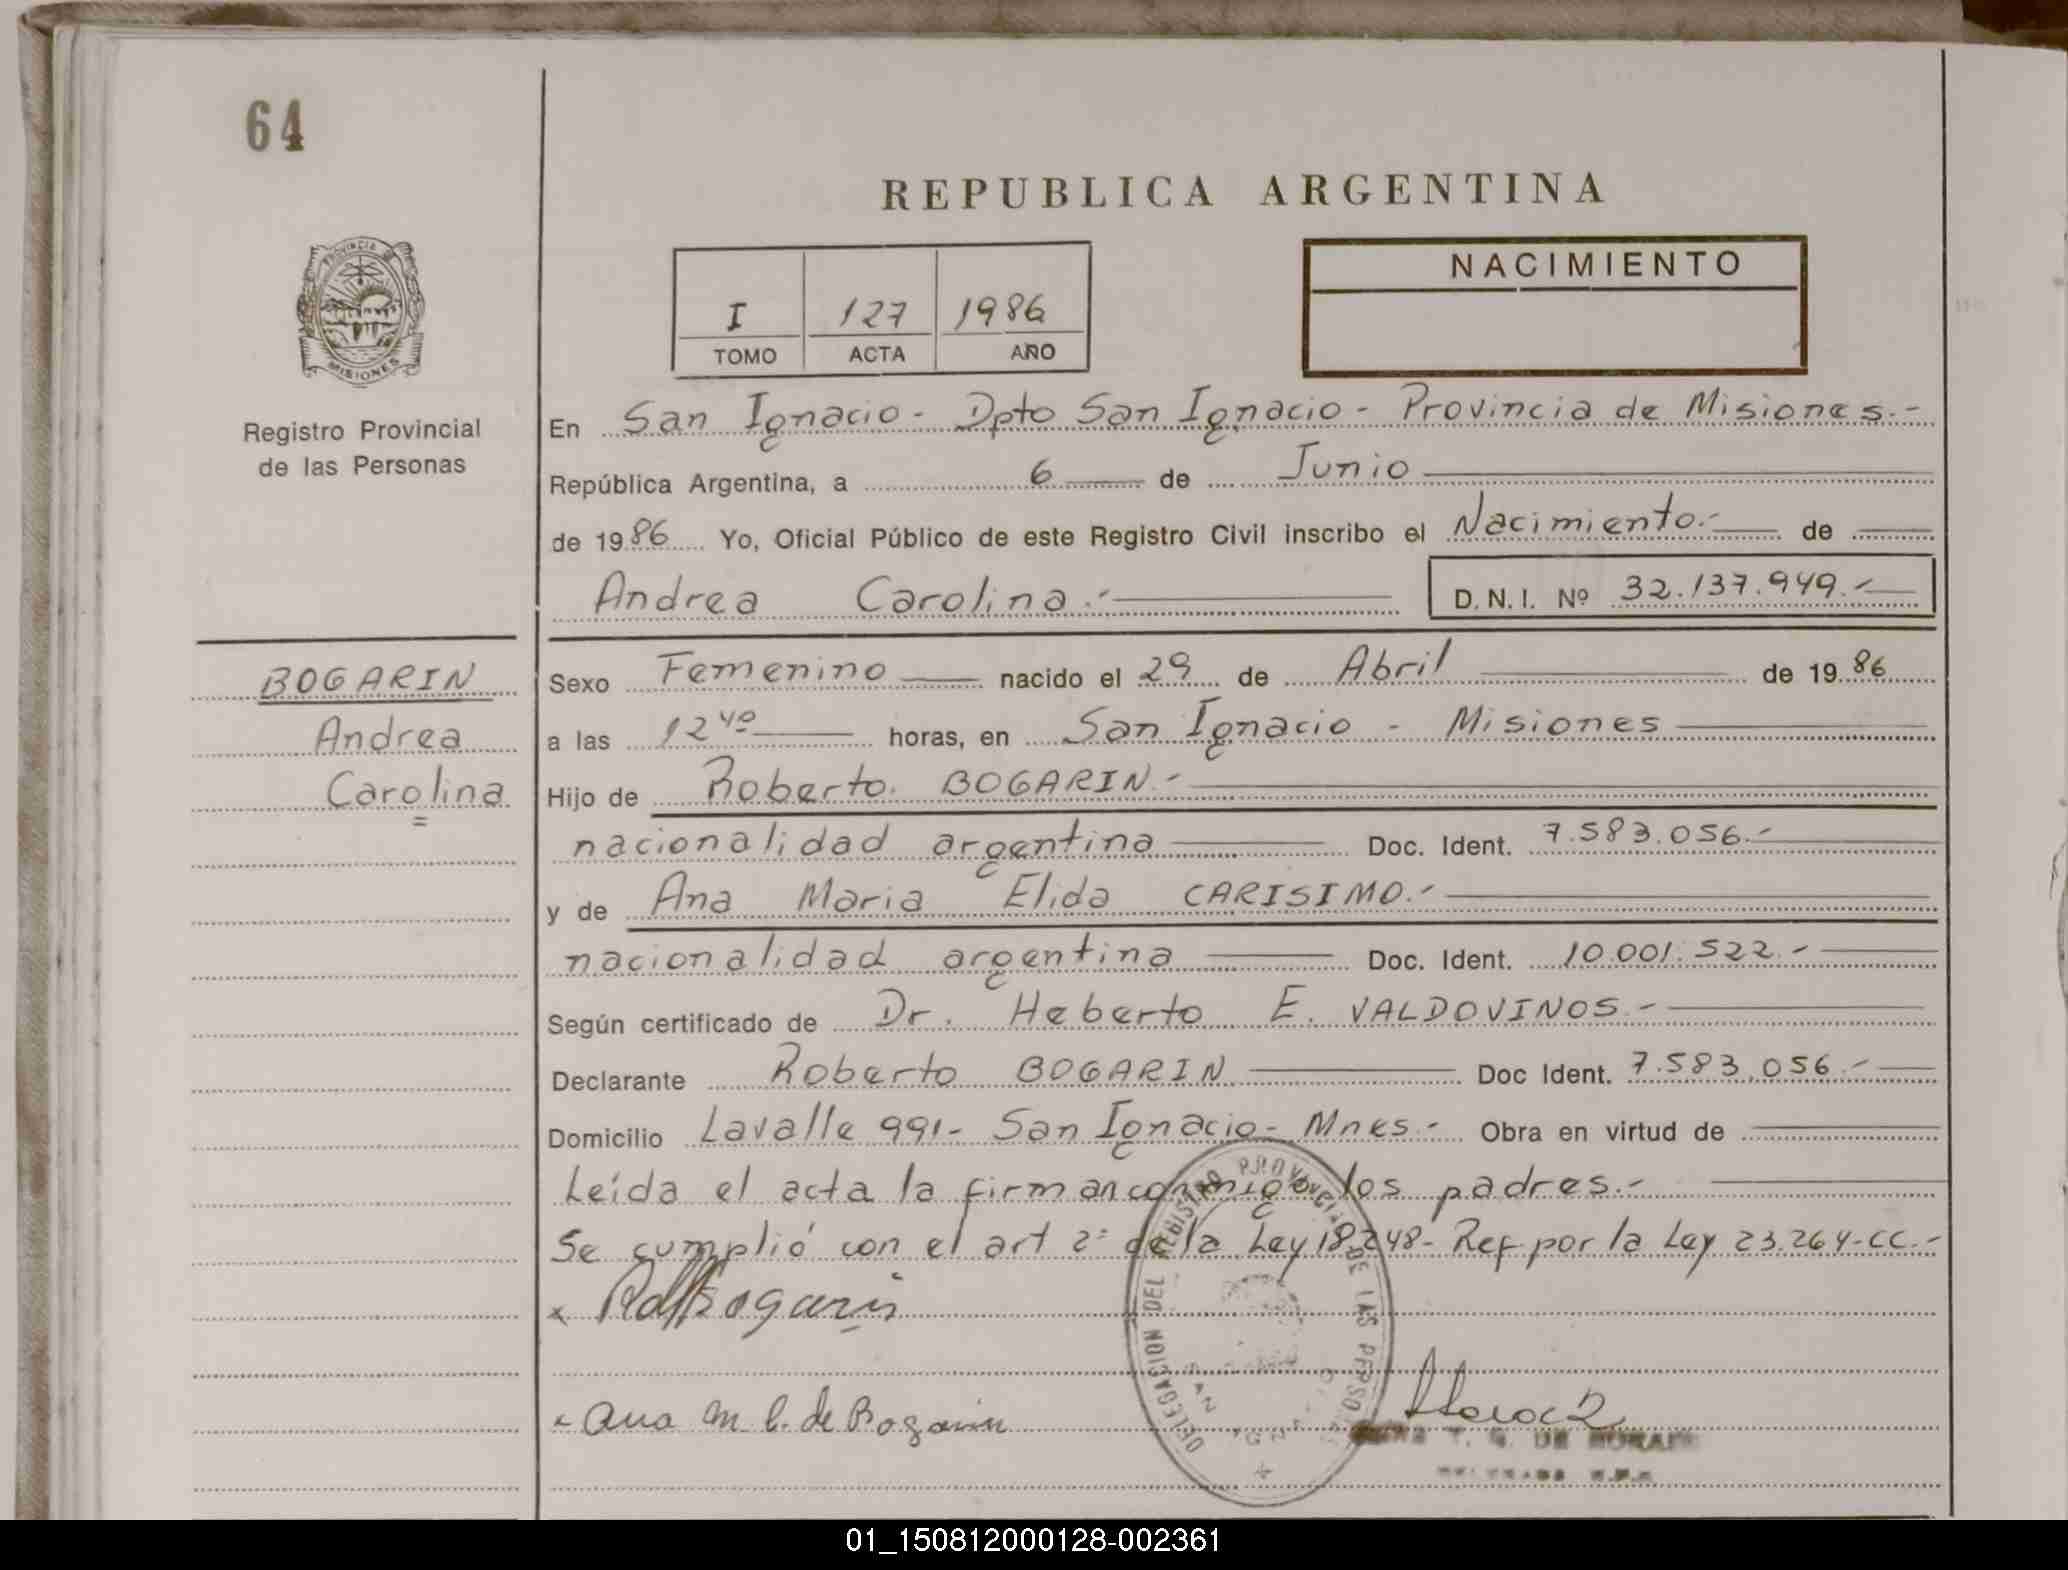 64
REPUBLICA ARGENTINA
PROVINCIA DE
MISIONES
Registro Provincial
de las Personas
I 127 1986
TOMO ACTA AÑO
NACIMIENTO
En San Ignacio - Dpto San Ignacio - Provincia de Misiones.-
República Argentina, a 6 de Junio
de 1986 Yo, Oficial Público de este Registro Civil inscribo el Nacimiento.- de
Andrea Carolina.- D.N.I. Nº 32.137.949.-
BOGARIN
Andrea
Carolina
Sexo Femenino nacido el 29 de Abril de 1986
a las 12 40 horas, en San Ignacio - Misiones
Hijo de Roberto BOGARIN.-
nacionalidad argentina Doc. Ident. 7.583.056.-
y de Ana Maria Elida CARISIMO.-
nacionalidad argentina Doc. Ident. 10.001.522.-
Según certificado de Dr. Heberto E. VALDOVINOS.-
Declarante Roberto BOGARIN Doc Ident. 7.583.056.-
Domicilio Lavalle 991- San Ignacio- Mnes.- Obra en virtud de
Leída el acta la firman conmigo los padres.-
Se cumplió con el art 2º de la Ley 18.248- Ref por la Ley 23.264-CC.-
x Bogarin
DELEGACION DEL REGISTRO PROVINCIAL DE LAS PERSONAS
SAN IGNACIO
x Ana M C. de Bogarin
T. G. DE
01_150812000128-002361